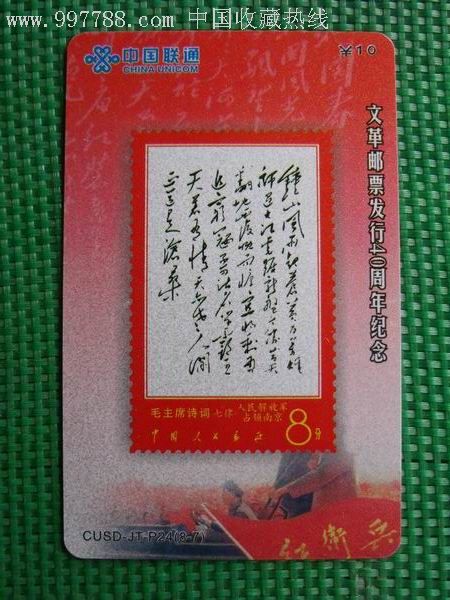 www.997788.com 中国收藏热线
中国联通
CHINA UNICOM
¥10
文革邮票发行40周年纪念
鐘山風雨起蒼黃百万雄
师过大江虎踞龙盘今胜昔天
翻地覆慨而慷宜将剩勇
追穷寇不可沽名学霸王
天若有情天亦老人间
正道是滄桑
毛主席诗词 七律 人民解放军
占领南京
中国人民邮政 8分
CUSD-JT-P24(8-7)
红衛兵